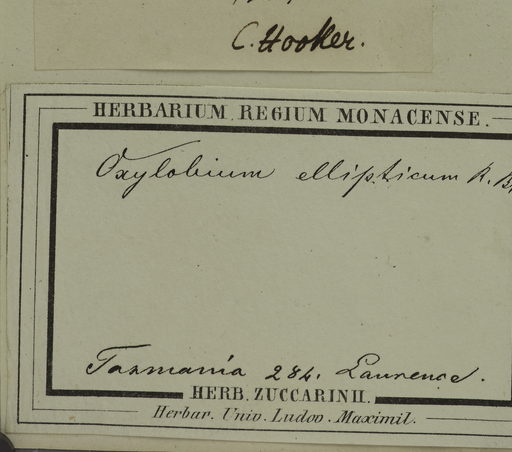 C. Hooker.
HERBARIUM REGIUM MONACENSE.
Oxylobium ellipticum R. Br
Tasmania 284. Laurence.
HERB. ZUCCARINII.
Herbar. Univ. Ludov. Maximil.